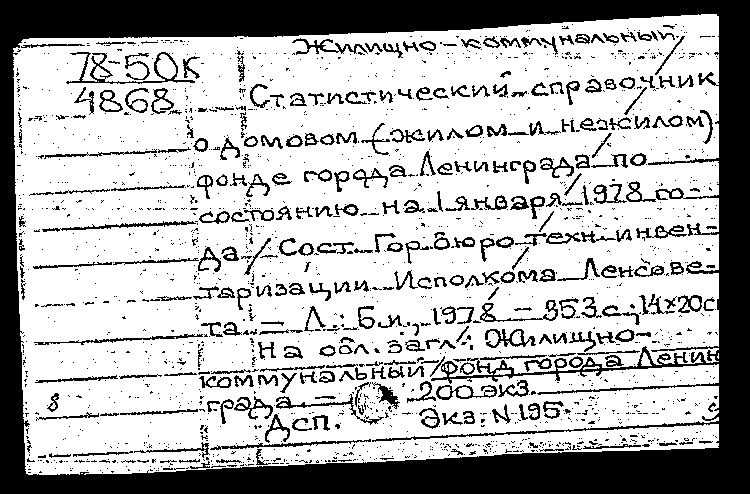 Жилищно-коммунальный
78-50К
48.68
Статистический справочник
о домовом (жилом и нежилом)
фонде города Ленинграда по
состоянию на 1 января 1978 го-
да / Сост. Гор.бюро техн. инвен-
таризации Исполкома Ленсове-
та. — Л.: Б.и., 1978 — 353 с.; 14×20см
На обл. загл.: Жилищно-
коммунальный фонд города Ленин
8
града. — 200 экз.
Дсп. Экз. N 195.